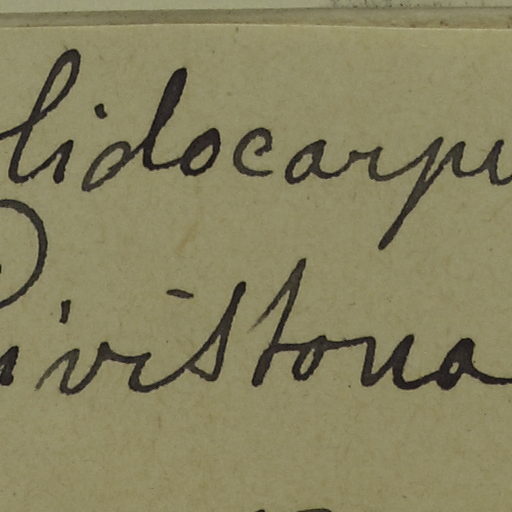 lidocarpu
ivistona